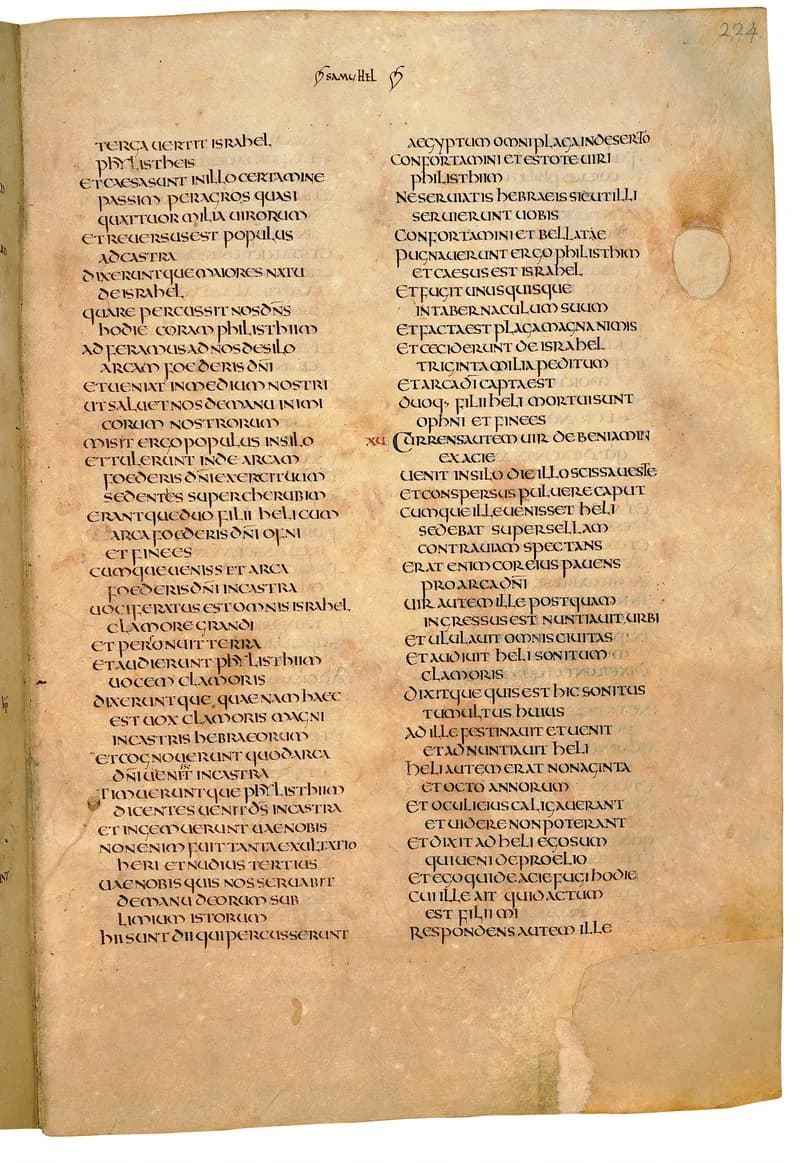 224
SAMUHEL
TERGA UERTIT ISRAHEL
PHYLISTHEIS
ET CAESA SUNT IN ILLO CERTAMINE
PASSIM PER AGROS QUASI
QUATTUOR MILIA UIRORUM
ET REUERSUS EST POPULUS
AD CASTRA
DIXERUNTQUE MAIORES NATU
DE ISRAHEL
QUARE PERCUSSIT NOS DN̄S
HODIE CORAM PHILISTHIIM
ADFERAMUS AD NOS DE SILO
ARCAM FOEDERIS DN̄I
ET UENIAT IN MEDIUM NOSTRI
UT SALUET NOS DE MANU INIMI
CORUM NOSTRORUM
MISIT ERGO POPULUS IN SILO
ET TULERUNT INDE ARCAM
FOEDERIS DN̄I EXERCITUUM
SEDENTES SUPER CHERUBIM
ERANTQUE DUO FILII HELI CUM
ARCA FOEDERIS DN̄I OFNI
ET FINEES
CUMQUE UENISSET ARCA
FOEDERIS DN̄I IN CASTRA
UOCIFERATUS EST OMNIS ISRAHEL
CLAMORE GRANDI
ET PERSONUIT TERRA
ET AUDIERUNT PHYLISTHIIM
UOCEM CLAMORIS
DIXERUNTQUE QUAENAM HAEC
EST UOX CLAMORIS MAGNI
IN CASTRIS HEBRAEORUM
ET COGNOUERUNT QUOD ARCA
DN̄I UENIT IN CASTRA
TIMUERUNTQUE PHYLISTHIIM
DICENTES UENIT DS̄ IN CASTRA
ET INGEMUERUNT UAE NOBIS
NON ENIM FUIT TANTA EXULTATIO
HERI ET NUDIUS TERTIUS
UAE NOBIS QUIS NOS SERUABIT
DE MANU DEORUM SUB
LIMIUM ISTORUM
HII SUNT DII QUI PERCUSSERUNT
AEGYPTUM OMNI PLAGA IN DESERTO
CONFORTAMINI ET ESTOTE UIRI
PHILISTHIIM
NE SERUIATIS HEBRAEIS SICUT ILLI
SERUIERUNT UOBIS
CONFORTAMINI ET BELLATAE
PUGNAUERUNT ERGO PHILISTHIM
ET CAESUS EST ISRAHEL
ET FUGIT UNUSQUISQUE
IN TABERNACULUM SUUM
ET FACTA EST PLAGA MAGNA NIMIS
ET CECIDERUNT DE ISRAHEL
TRIGINTA MILIA PEDITUM
ET ARCA DĪ CAPTA EST
DUOQ· FILII HELI MORTUI SUNT
OPHNI ET FINEES
XU CURRENS AUTEM UIR DE BENIAMIN
EX ACIE
UENIT IN SILO DIE ILLO SCISSA UESTE
ET CONSPERSUS PULUERE CAPUT
CUMQUE ILLE UENISSET HELI
SEDEBAT SUPER SELLAM
CONTRA UIAM SPECTANS
ERAT ENIM COR EIUS PAUENS
PRO ARCA DN̄I
UIR AUTEM ILLE POSTQUAM
INGRESSUS EST NUNTIAUIT URBI
ET ULULAUIT OMNIS CIUITAS
ET AUDIUIT HELI SONITUM
CLAMORIS
DIXITQUE QUIS EST HIC SONITUS
TUMULTUS HUIUS
AD ILLE FESTINAUIT ET UENIT
ET ADNUNTIAUIT HELI
HELI AUTEM ERAT NONAGINTA
ET OCTO ANNORUM
ET OCULI EIUS CALIGAUERANT
ET UIDERE NON POTERANT
ET DIXIT AD HELI EGO SUM
QUI UENI DE PROELIO
ET EGO QUI DE ACIE FUGI HODIE
CUI ILLE AIT QUID ACTUM
EST FILII MI
RESPONDENS AUTEM ILLE